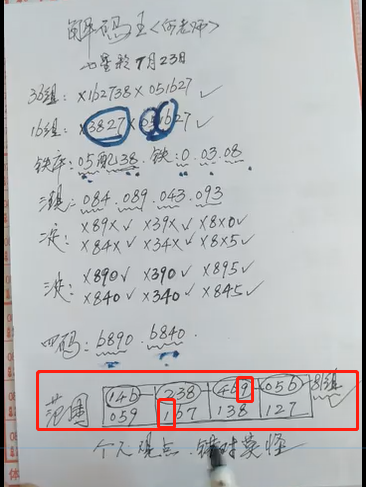 解码王<何老师>
七星彩7月23日
36组: X162738X051627
16组: X3827X051627
铁率: 05配38.铁:0.03.08
头尾: 084.089.043.093
定: X89X X39X X8X0
X84X X34X X8X5
X890 X390 X895
X840 X340 X845
四码: 6890.6840.
范围 146-238-469-056 81组
059 167 138 127
个人观点.错对莫怪